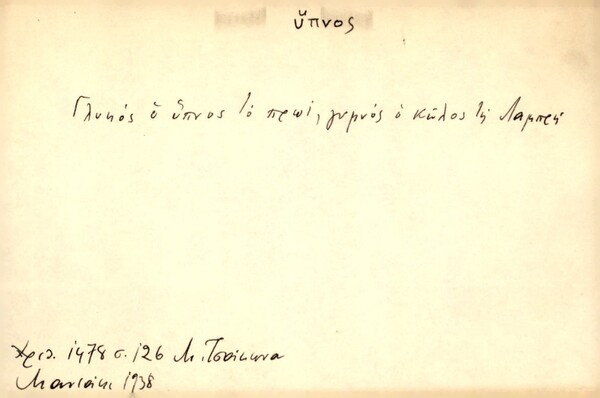 ὕπνος
Γλυκός ὁ ὕπνος τό πρωί, γυμνός ὁ κῶλος τή Λαμπρή
Χειρ. 1478 σ. 126 Μ. Τσάκωνα
Μανιάκι 1938